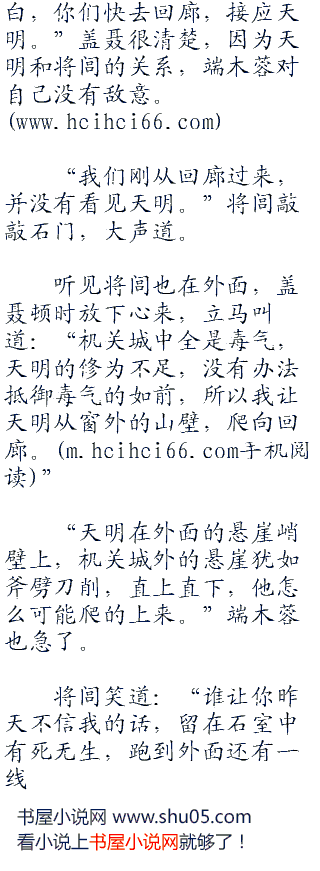 白，你们快去回廊，接应天
明。”盖聂很清楚，因为天
明和将闾的关系，端木蓉对
自己没有敌意。
(www.hcihci66.com)
“我们刚从回廊过来，
并没有看见天明。”将闾敲
敲石门，大声道。
听见将闾也在外面，盖
聂顿时放下心来，立马叫
道：“机关城中全是毒气，
天明的修为不足，没有办法
抵御毒气的如前，所以我让
天明从窗外的山壁，爬向回
廊。(m.hcihci66.com手机阅
读)”
“天明在外面的悬崖峭
壁上，机关城外的悬崖犹如
斧劈刀削，直上直下，他怎
么可能爬的上来。”端木蓉
也急了。
将闾笑道：“谁让你昨
天不信我的话，留在石室中
有死无生，跑到外面还有一
线
书屋小说网 www.shu05.com
看小说上书屋小说网就够了！